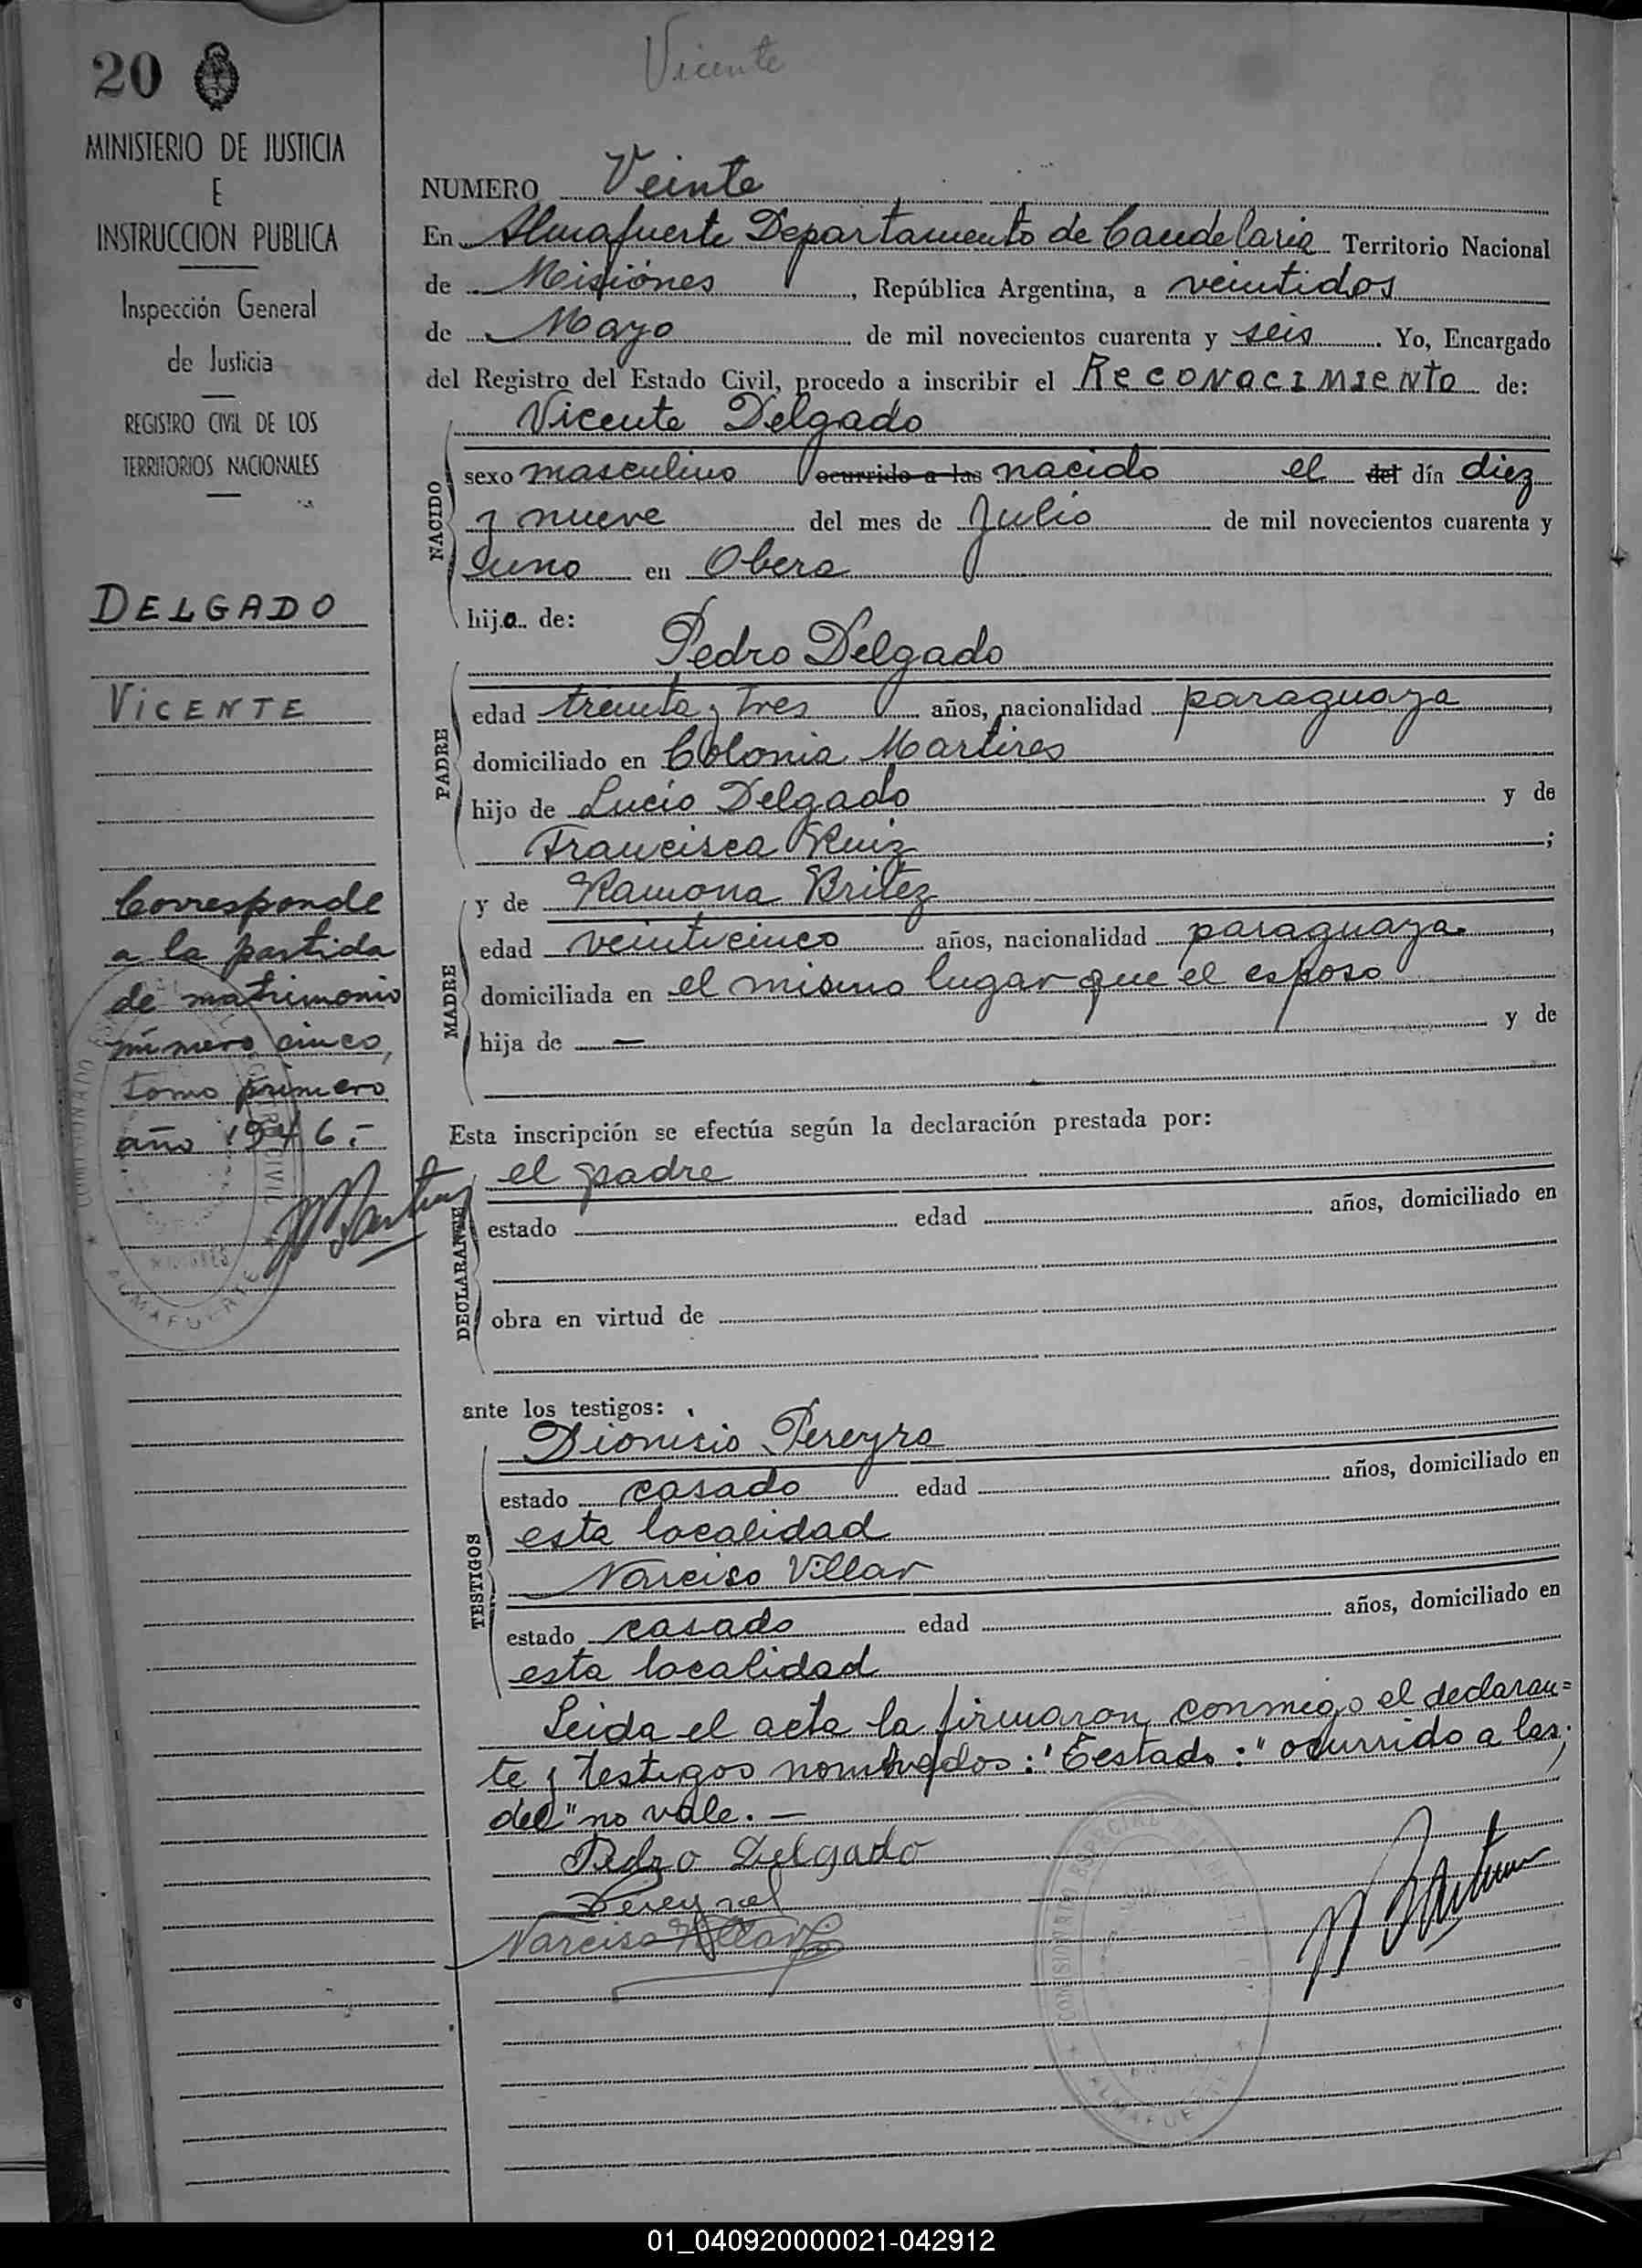 20
MINISTERIO DE JUSTICIA
E
INSTRUCCION PUBLICA
Inspección General
de Justicia
REGISTRO CIVIL DE LOS
TERRITORIOS NACIONALES
DELGADO
VICENTE
Corresponde
a la partida
de matrimonio
número cinco,
tomo primero
año 1946.-
Vicente
NUMERO Veinte
En Almafuerte Departamento de Candelaria Territorio Nacional
de Misiónes, República Argentina, a veintidos
de Mayo de mil novecientos cuarenta y seis. Yo, Encargado
del Registro del Estado Civil, procedo a inscribir el RECONOCIMIENTO de:
Vicente Delgado
NACIDO
sexo masculino ocurrido a las nacido el del día diez
y nueve del mes de Julio de mil novecientos cuarenta y
uno en Obera
hijo de:
Pedro Delgado
PADRE
edad treinta y tres años, nacionalidad paraguaya,
domiciliado en Colonia Martires
hijo de Lucio Delgado y de
Francisca Ruiz;
y de Ramona Britez
MADRE
edad veinticinco años, nacionalidad paraguaya,
domiciliada en el mismo lugar que el esposo
hija de — y de
Esta inscripción se efectúa según la declaración prestada por:
el padre
DECLARANTE
estado edad años, domiciliado en
obra en virtud de
ante los testigos:
Dionisio Pereyra
TESTIGOS
estado casado edad años, domiciliado en
esta localidad
Narciso Villar
estado casado edad años, domiciliado en
esta localidad
Leida el acta la firmaron conmigo el declaran=
te y testigos nombrados: "Testado: "ocurrido a las;
del" no vale.—
Pedro Delgado
Narciso Villar
ALMAFUERTE
01_040920000021-042912